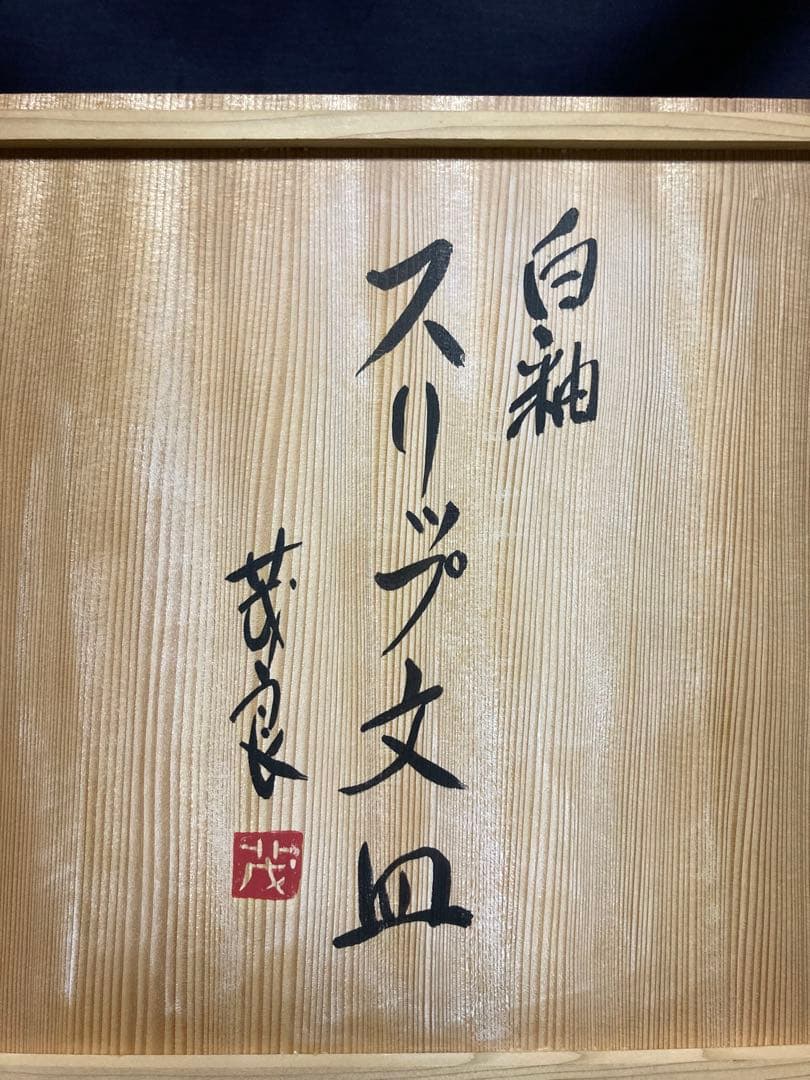 白釉
スリップ文皿
茂良
茂